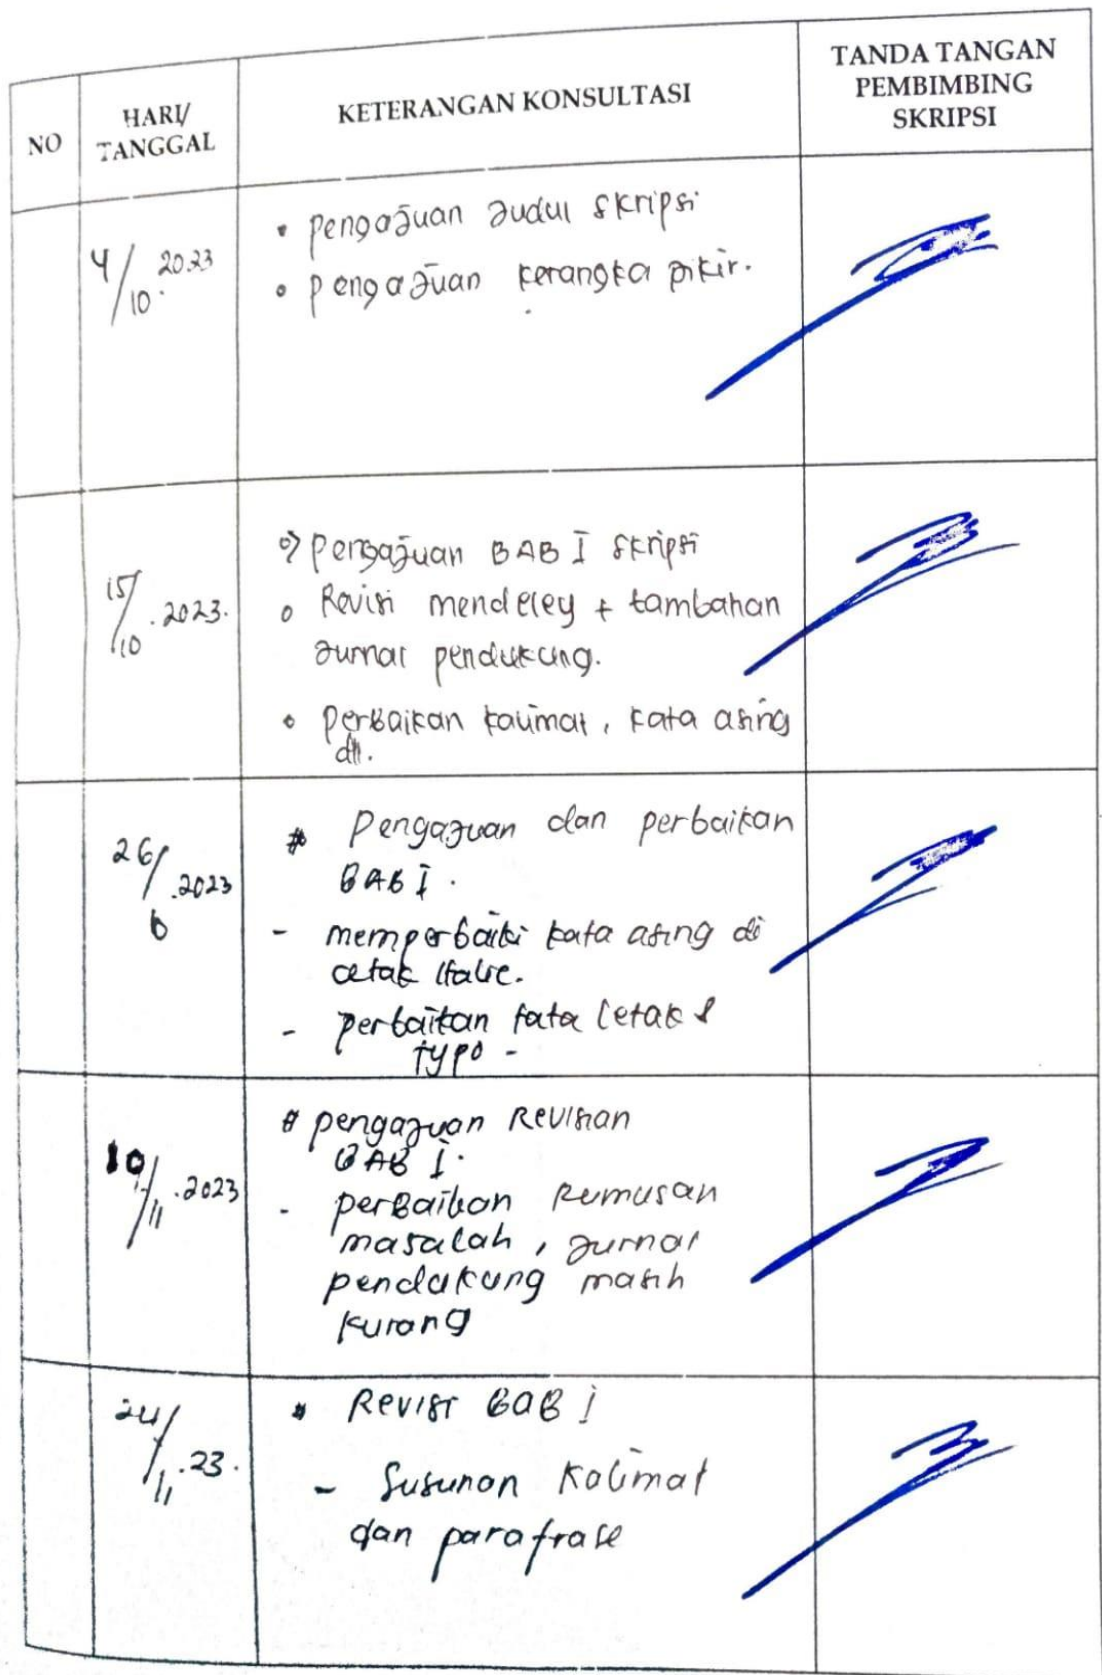 NO
HARI/
TANGGAL
KETERANGAN KONSULTASI
TANDA TANGAN
PEMBIMBING
SKRIPSI
4/10 2023
• Pengajuan Judul Skripsi
• Pengajuan kerangka pikir.
15/10 . 2023.
Pengajuan BAB I Skripsi
Revisi mendeley + tambahan
Jurnal pendukung.
• Perbaikan kalimat, kata asing
dll.
26/6 .2023
# Pengajuan dan perbaikan
BAB I.
- memperbaiki kata asing di
cetak Italic.
- perbaikan tata letak &
typo -
10/11 .2023
# pengajuan Revisian
BAB I.
- perbaikan Rumusan
masalah, Jurnal
pendukung masih
kurang
24/11 .23.
# Revisi BAB I
- Susunan Kalimat
dan parafrase